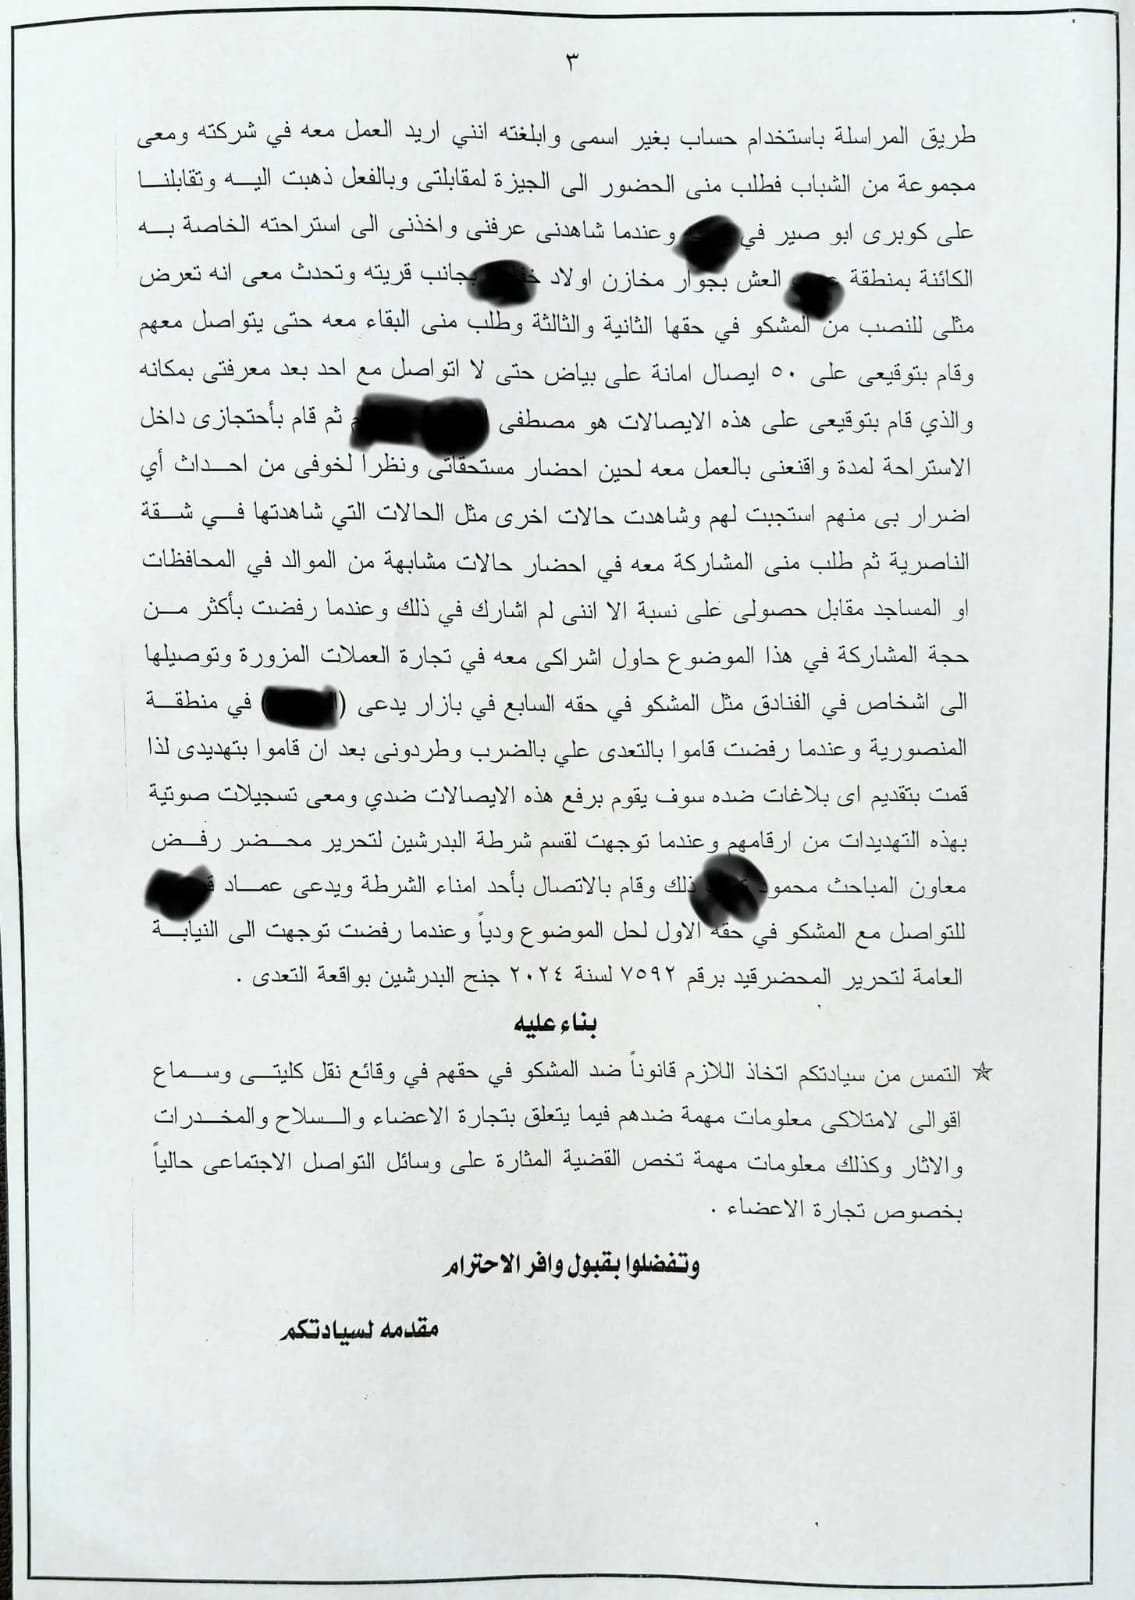 ٣
طريق المراسلة باستخدام حساب بغير اسمى وابلغته انني اريد العمل معه في شركته ومعى
مجموعة من الشباب فطلب منى الحضور الى الجيزة لمقابلتى وبالفعل ذهبت اليه وتقابلنا
على كوبرى ابو صير في وعندما شاهدنى عرفنى واخذنى الى استراحته الخاصة به
الكائنة بمنطقة العش بجوار مخازن اولاد بجانب قريته وتحدث معى انه تعرض
مثلى للنصب من المشكو في حقها الثانية والثالثة وطلب منى البقاء معه حتى يتواصل معهم
وقام بتوقيعى على ٥٠ ايصال امانة على بياض حتى لا اتواصل مع احد بعد معرفتى بمكانه
والذي قام بتوقيعى على هذه الايصالات هو مصطفى ثم قام بأحتجازى داخل
الاستراحة لمدة واقنعنى بالعمل معه لحين احضار مستحقاتى ونظرا لخوفى من احداث أي
اضرار بى منهم استجبت لهم وشاهدت حالات اخرى مثل الحالات التي شاهدتها في شقة
الناصرية ثم طلب منى المشاركة معه في احضار حالات مشابهة من الموالد في المحافظات
او المساجد مقابل حصولى على نسبة الا اننى لم اشارك في ذلك وعندما رفضت بأكثر من
حجة المشاركة في هذا الموضوع حاول اشراكى معه في تجارة العملات المزورة وتوصيلها
الى اشخاص في الفنادق مثل المشكو في حقه السابع في بازار يدعى ( ) في منطقة
المنصورية وعندما رفضت قاموا بالتعدى علي بالضرب وطردونى بعد ان قاموا بتهديدى لذا
قمت بتقديم اى بلاغات ضده سوف يقوم برفع هذه الايصالات ضدي ومعى تسجيلات صوتية
بهذه التهديدات من ارقامهم وعندما توجهت لقسم شرطة البدرشين لتحرير محضر رفض
معاون المباحث محمود ذلك وقام بالاتصال بأحد امناء الشرطة ويدعى عماد
للتواصل مع المشكو في حقه الاول لحل الموضوع ودياً وعندما رفضت توجهت الى النيابة
العامة لتحرير المحضرقيد برقم ٧٥٩٢ لسنة ٢٠٢٤ جنح البدرشين بواقعة التعدى .
بناء عليه
التمس من سيادتكم اتخاذ اللازم قانوناً ضد المشكو في حقهم في وقائع نقل كليتى وسماع
اقوالى لامتلاكى معلومات مهمة ضدهم فيما يتعلق بتجارة الاعضاء والسلاح والمخدرات
والاثار وكذلك معلومات مهمة تخص القضية المثارة على وسائل التواصل الاجتماعى حالياً
بخصوص تجارة الاعضاء .
وتفضلوا بقبول وافر الاحترام
مقدمه لسيادتكم